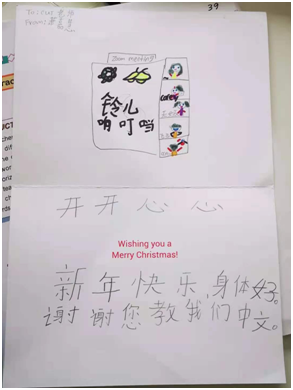 39
To:
From:
Zoom meeting
铃儿
响叮当
开开心心
Wishing you a
Merry Christmas!
新年快乐,身体好。
谢谢您教我们中文。